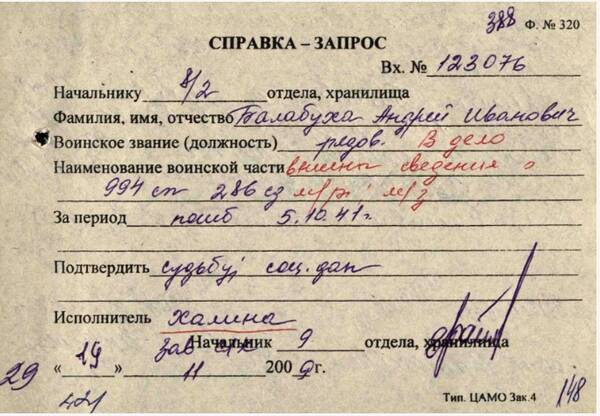 388 Ф. № 320
СПРАВКА – ЗАПРОС
Вх. № 123076
Начальнику 8/2 отдела, хранилища
Фамилия, имя, отчество Балабуха Андрей Иванович
Воинское звание (должность) рядов. В дело
Наименование воинской части внесены сведения о
994 сп 286 сд м/р и м/з
За период погиб 5.10.41г.
Подтвердить судьбу, соц. дан
Исполнитель Халина
Начальник 9 отдела, хранилища
29 « 19 » 11 2009г.
Тип. ЦАМО Зак.4 148